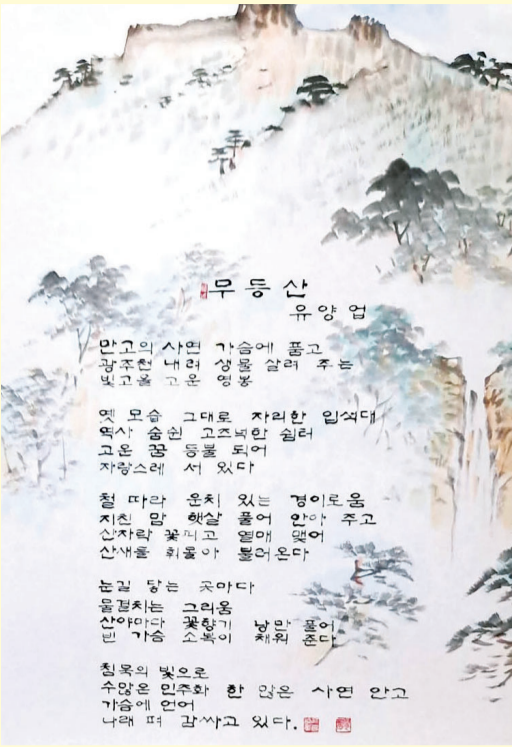 무등산
유양업
만고의 사연 가슴에 품고
광주천 내려 생물 살려 주는
빛고을 고운 영봉
옛 모습 그대로 자리한 입석대
역사 숨쉰 고즈넉한 쉼터
고운 꿈 등불 되어
자랑스레 서 있다
철 따라 운치 있는 경이로움
지친 맘 햇살 풀어 안아 주고
산자락 꽃피고 열매 맺어
산새들 휘몰아 불러온다
눈길 닿는 곳마다
물결치는 그리움
산야마다 꽃향기 낭만 풀어
빈 가슴 소복이 채워 준다
침묵의 빛으로
수많은 민주화 한 많은 사연 안고
가슴에 얹어
나래 펴 감싸고 있다.